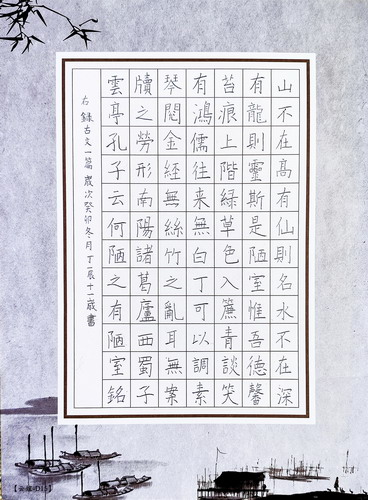 山不在高有仙則名水不在深
有龍則靈斯是陋室惟吾德馨
苔痕上階緑草色入簾青談笑
有鴻儒往来無白丁可以調素
琴閲金經無絲竹之亂耳無案
牘之勞形南陽諸葛廬西蜀子
雲亭孔子云何陋之有陋室銘
右錄古文一篇歲次癸卯冬月丁一辰十一歲書